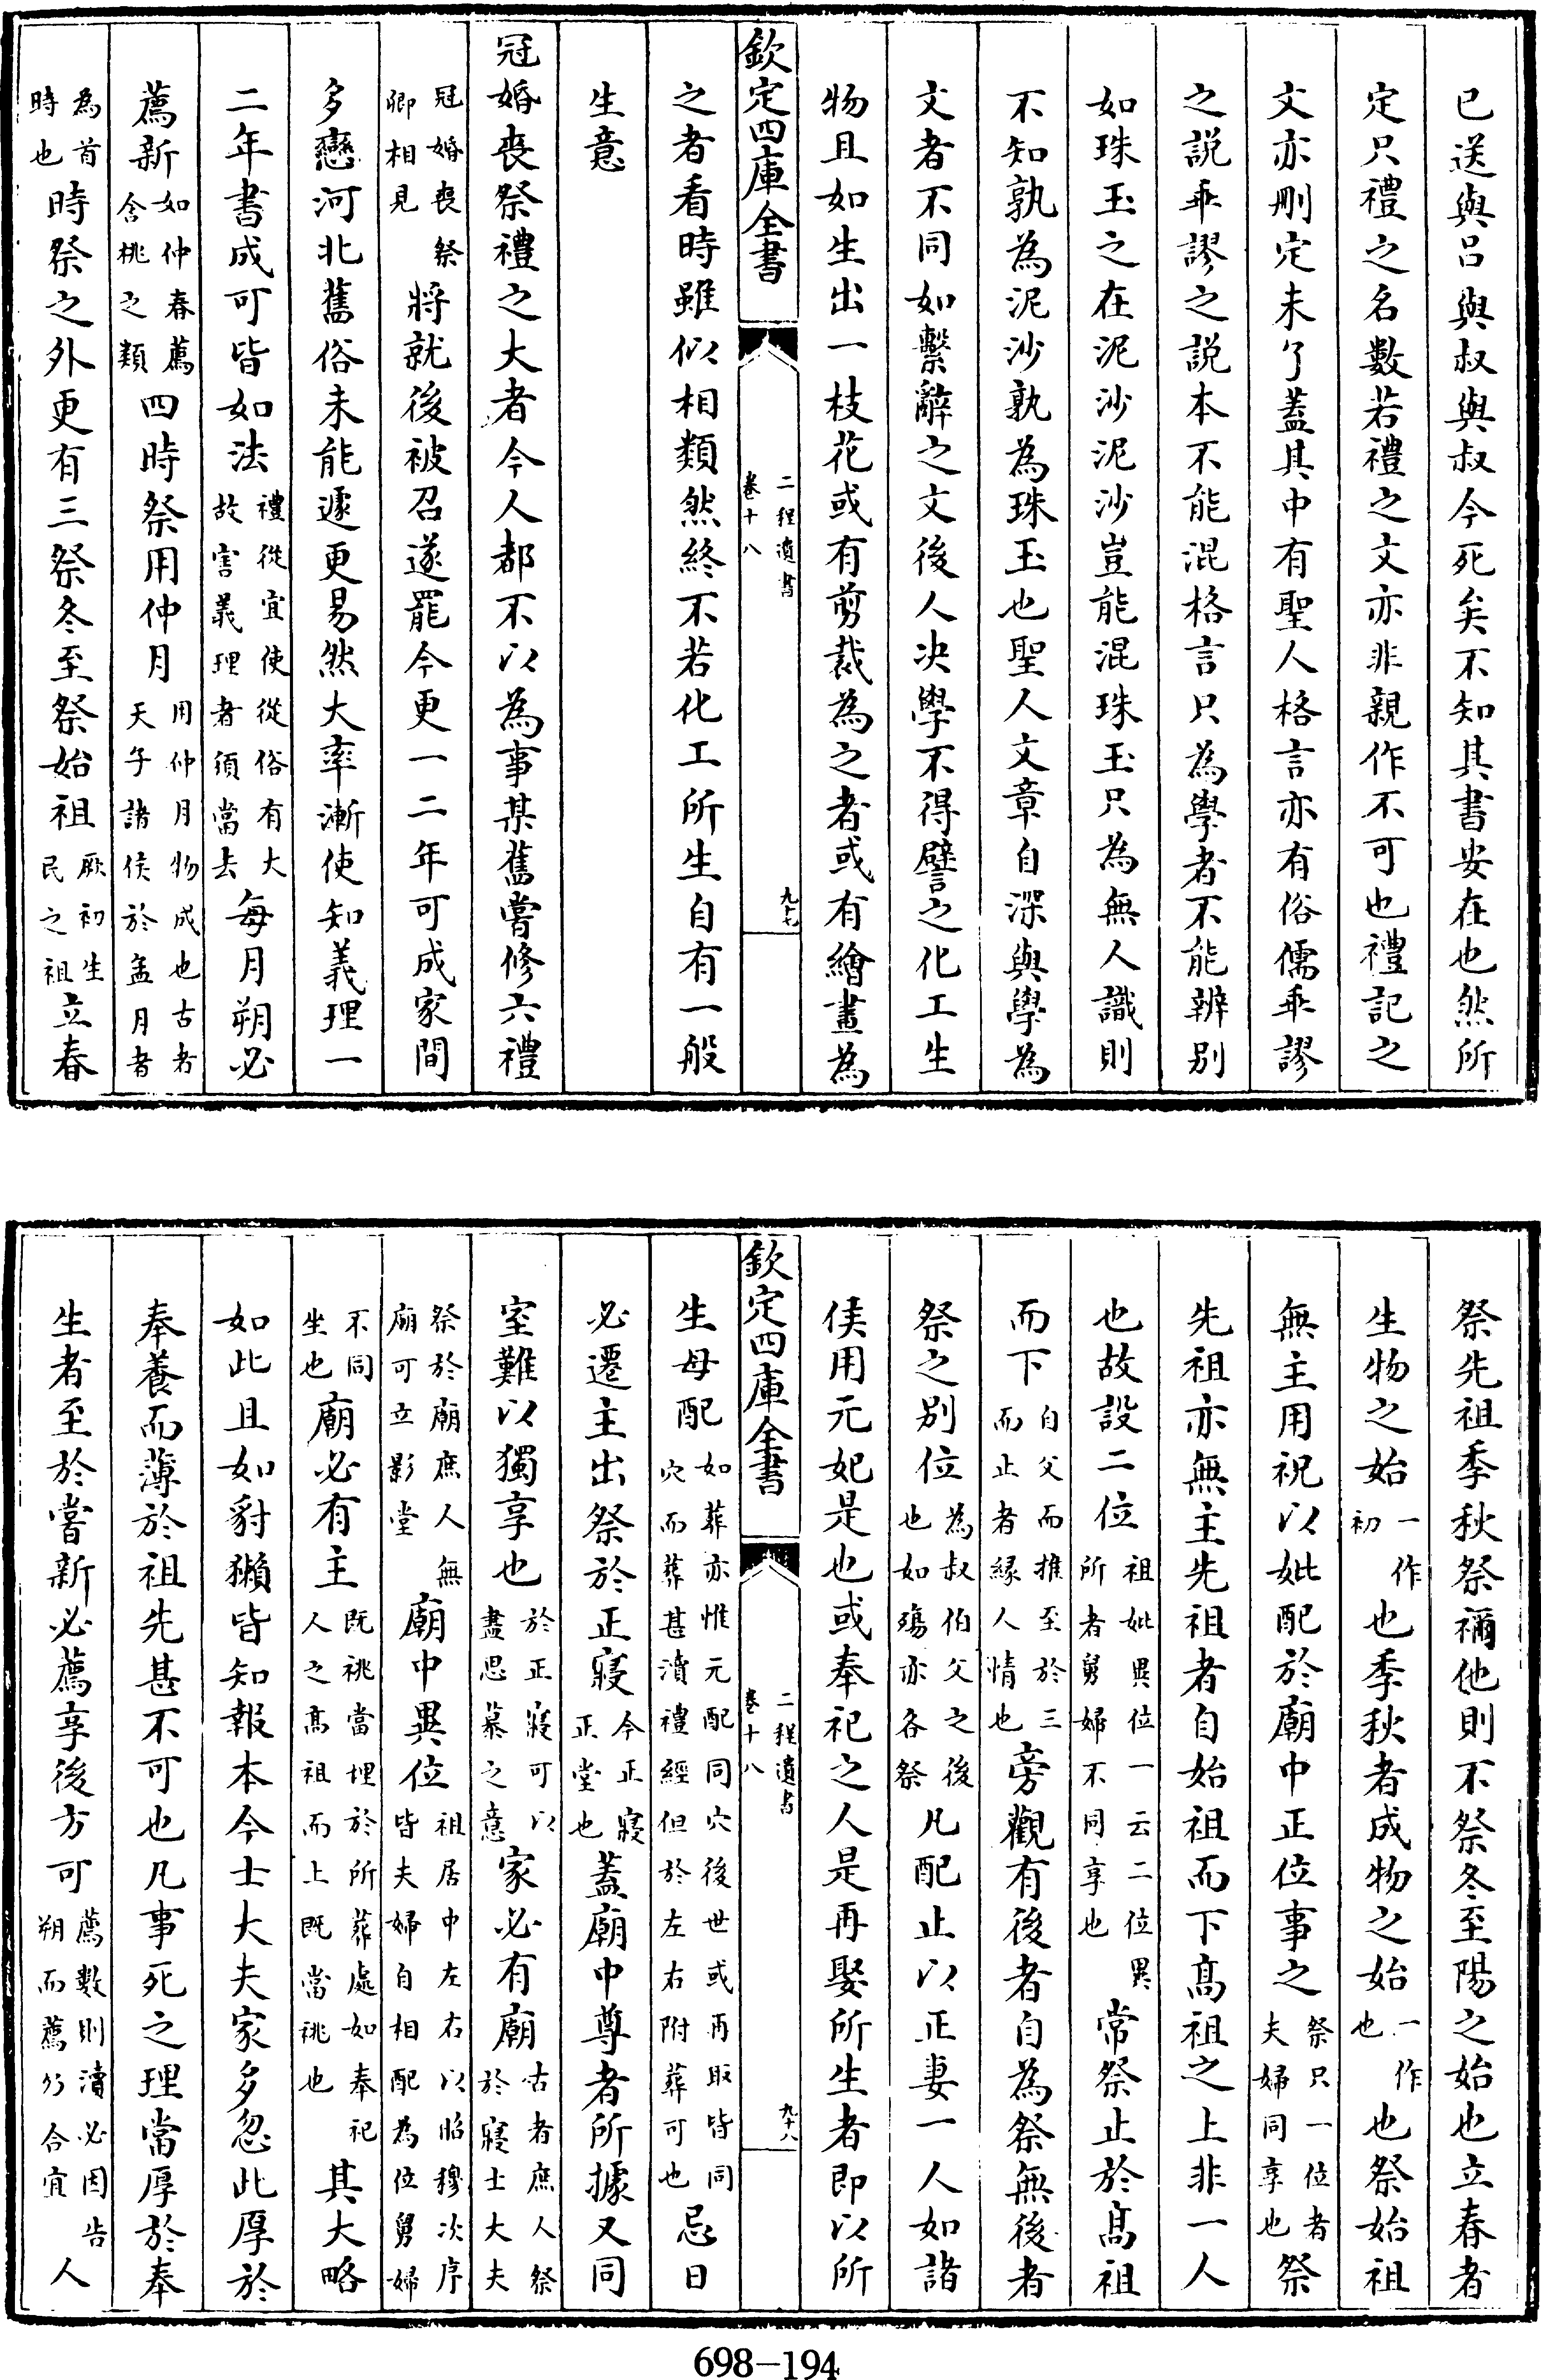 已送與呂與叔與叔今死矣不知其書安在也然所
定只禮之名數若禮之文亦非親作不可也禮記之
文亦刪定未了蓋其中有聖人格言亦有俗儒乖謬
之説乖謬之説本不能混格言只為學者不能辨别
如珠玉之在泥沙泥沙豈能混珠玉只為無人識則
不知孰為泥沙孰為珠玉也聖人文章自深與學為
文者不同如繫辭之文後人决學不得譬之化工生
物且如生出一枝花或有剪裁為之者或有繪畫為
欽定四庫全書
二程遺書
卷十八
九七
之者看時雖似相類然終不若化工所生自有一般
生意
冠婚喪祭禮之大者今人都不以為事某舊嘗修六禮
冠婚喪祭
卿相見
將就後被召遂罷今更一二年可成家間
多戀河北舊俗未能遽更易然大率漸使知義理一
二年書成可皆如法
禮從宜使從俗有大
故害義理者須當去
每月朔必
薦新
如仲春薦
含桃之類
四時祭用仲月
用仲月物成也古者
天子諸侯於孟月者
為首
時也
時祭之外更有三祭冬至祭始祖
厥初生
民之祖
立春
祭先祖季秋祭禰他則不祭冬至陽之始也立春者
生物之始
一作
初
也季秋者成物之始
一作
也
也祭始祖
無主用祝以妣配於廟中正位事之
祭只一位者
夫婦同享也
祭
先祖亦無主先祖者自始祖而下髙祖之上非一人
也故設二位
祖妣異位一云二位異
所者舅婦不同享也
常祭止於髙祖
而下
自父而推至於三
而止者縁人情也
旁觀有後者自為祭無後者
祭之别位
為叔伯父之後
也如殤亦各祭
凡配止以正妻一人如諸
侯用元妃是也或奉祀之人是再娶所生者即以所
欽定四庫全書
二程遺書
卷十八
九十八
生母配
如葬亦惟元配同穴後世或再取皆同
穴而葬甚瀆禮經但於左右附葬可也
忌日
必遷主出祭於正寢
今正寢
正堂也
蓋廟中尊者所據又同
室難以獨享也
於正寢可以
盡思慕之意
家必有廟
古者庶人祭
於寢士大夫
祭於廟庶人無
廟可立影堂
廟中異位
祖居中左右以昭穆次序
皆夫婦自相配為位舅婦
不同
坐也
廟必有主
既祧當埋於所葬處如奉祀
人之髙祖而上既當祧也
其大略
如此且如豺獺皆知報本今士大夫家多忽此厚於
奉養而薄於祖先甚不可也凡事死之理當厚於奉
生者至於嘗新必薦享後方可
薦數則瀆必因告
朔而薦乃合宜
人
698-194